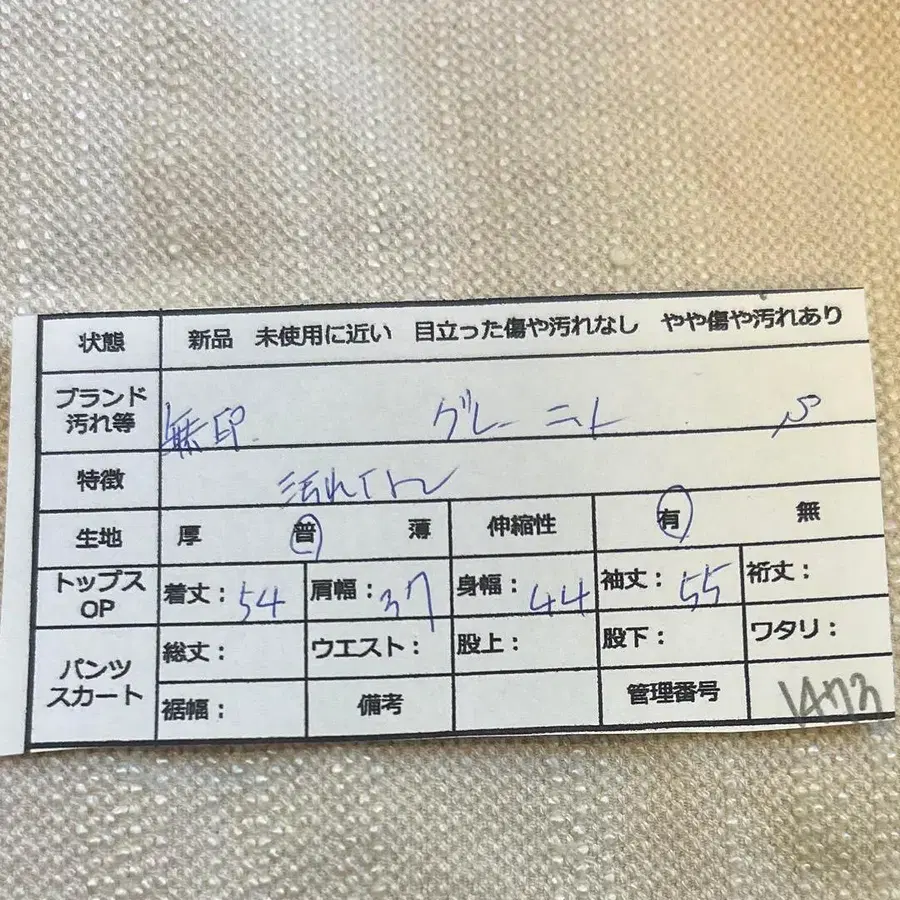 状態 新品 未使用に近い 目立った傷や汚れなし やや傷や汚れあり
ブランド
汚れ等 無印 グレー ニット
特徴 汚れ
生地 厚 普 薄 伸縮性 有 無
トップス
OP 着丈：54 肩幅：37 身幅：44 袖丈：55 裄丈：
パンツ
スカート 総丈： ウエスト： 股上： 股下： ワタリ：
裾幅： 備考 管理番号 1473